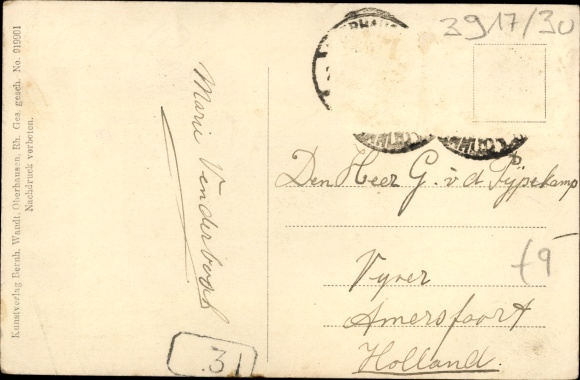 Kunstverlag Bernh. Wandt, Oberhausen, Rh. Ges. gesch. No. 919901
Nachdruck verboten.
Marie Venderbosch
31
3917/30
Den Heer G. v d Pijpekamp
Vyver
Amersfoort
Holland.
£9